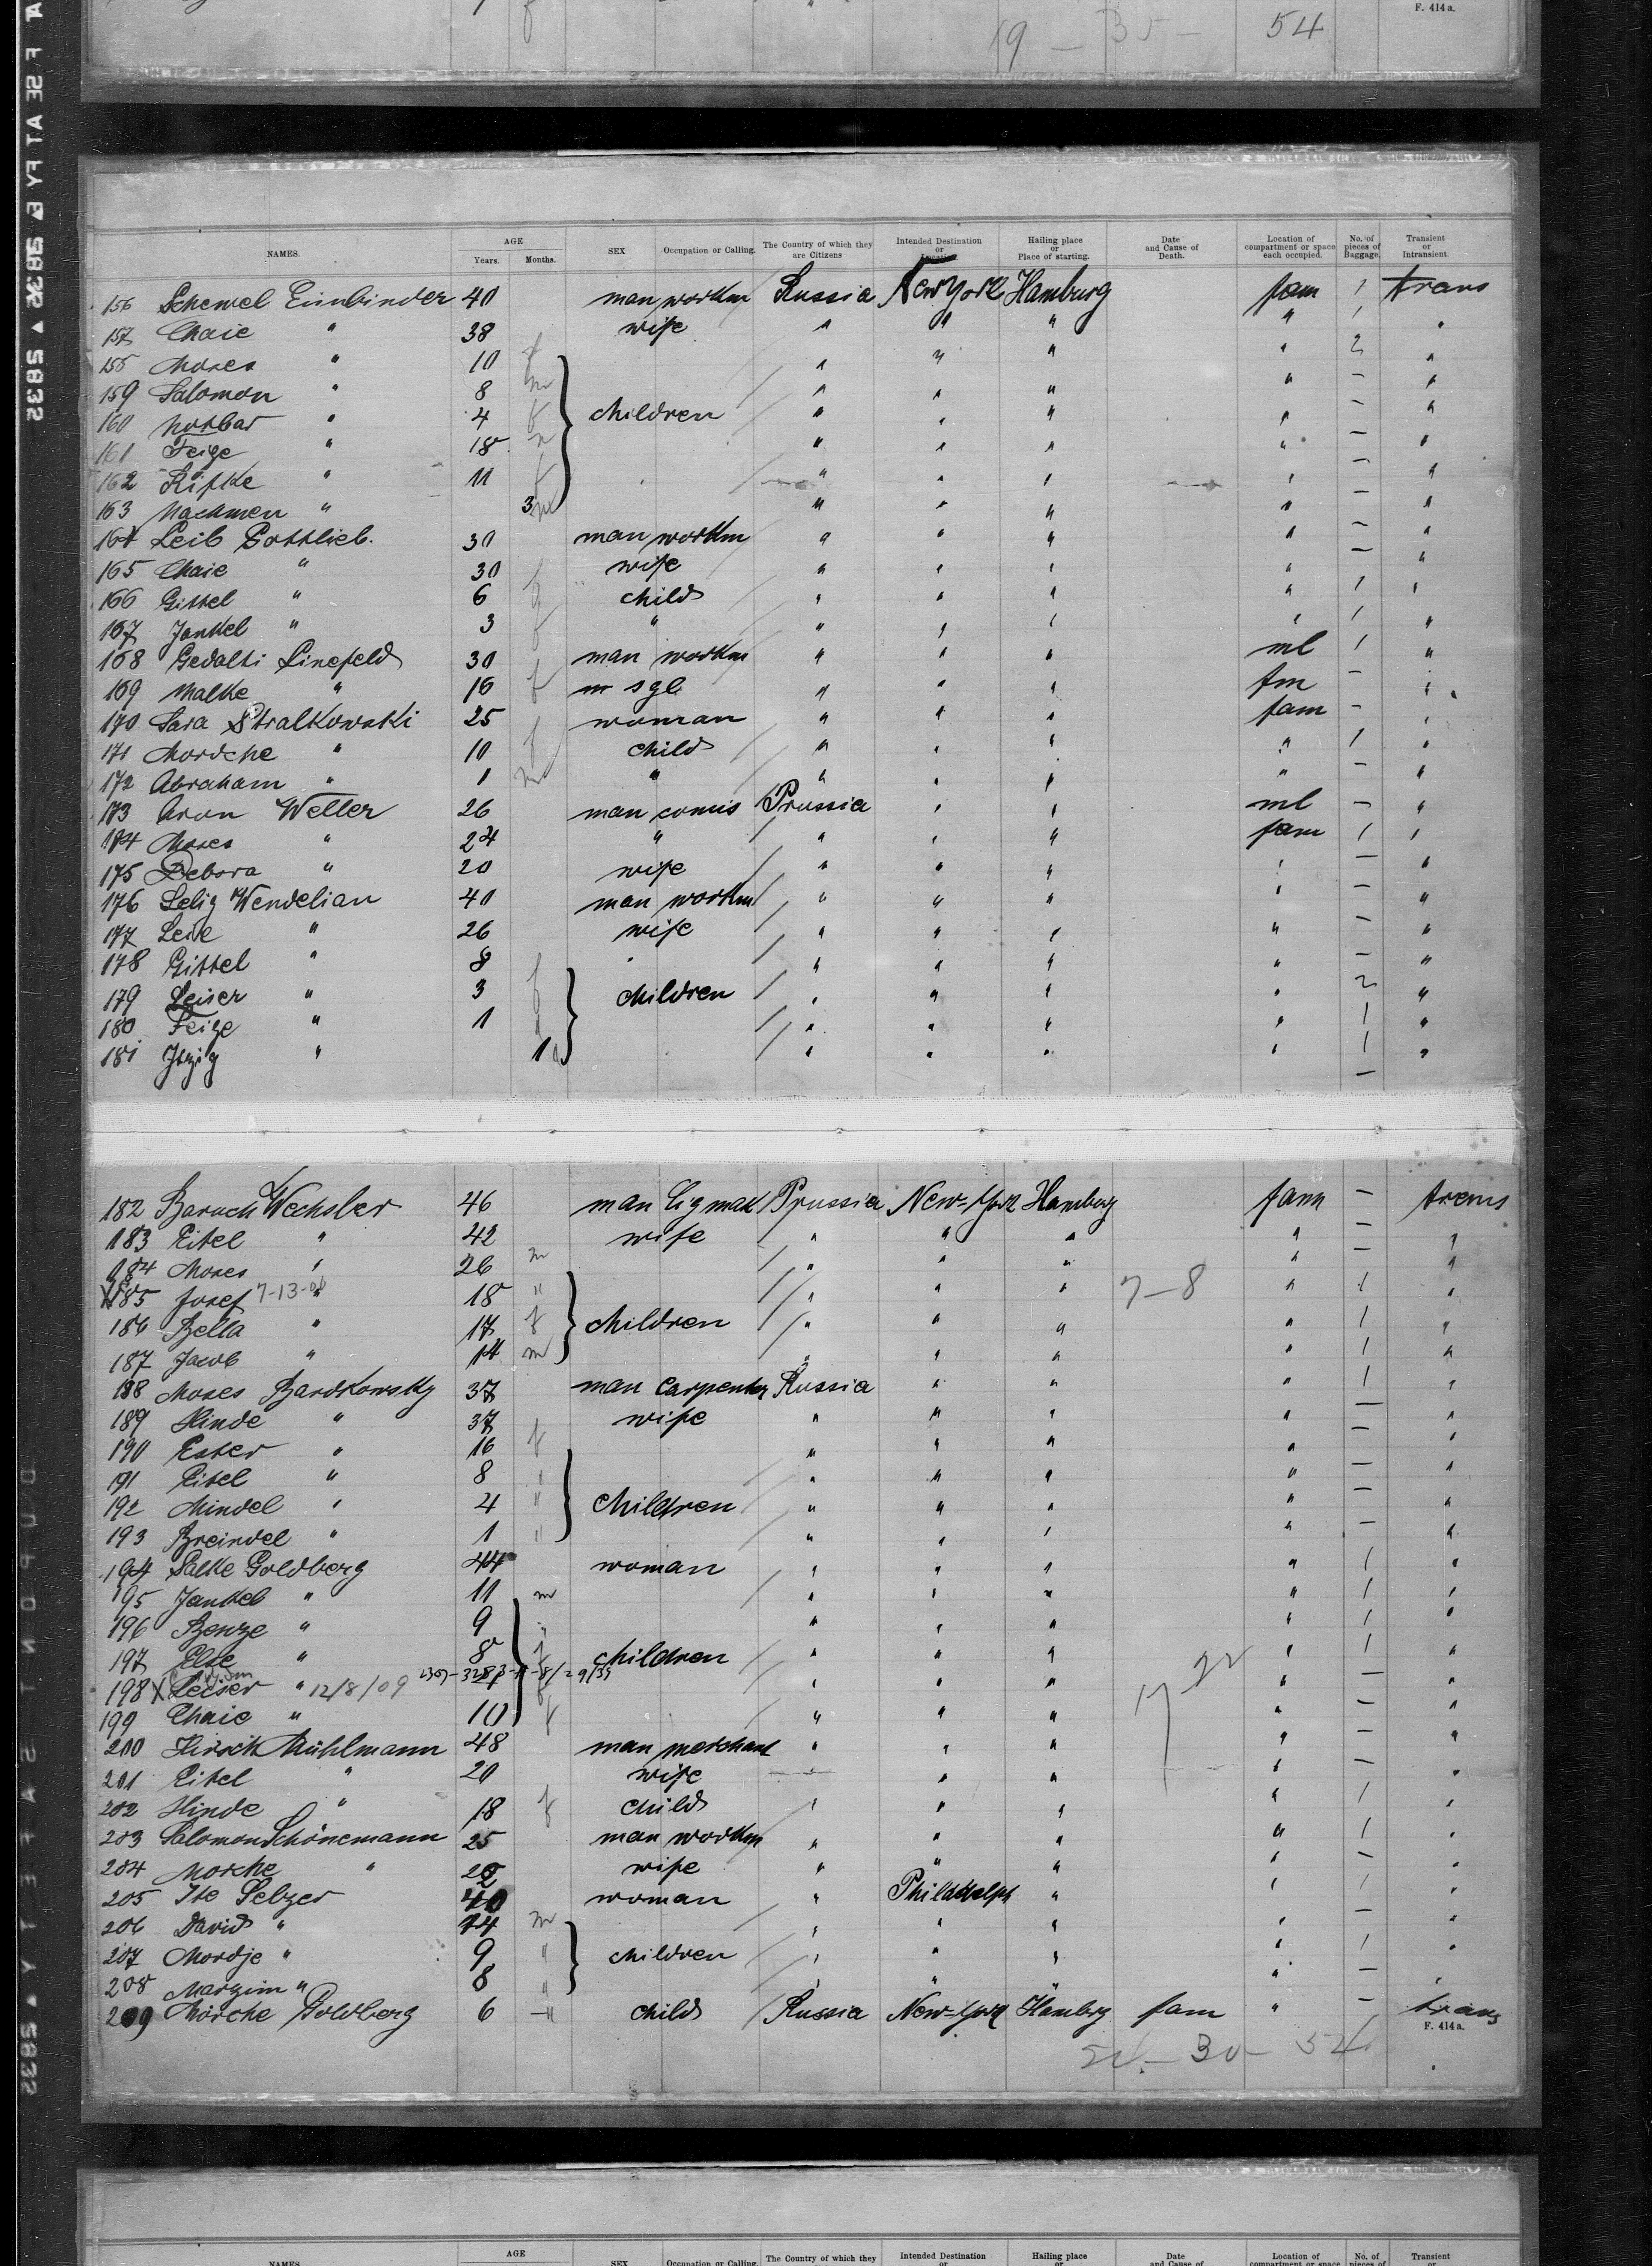 F. 414a.
19 — 35 — 54
NAMES. AGE Years. Months. SEX Occupation or Calling. The Country of which they are Citizens Intended Destination or Location. Hailing place or Place of starting. Date and Cause of Death. Location of compartment or space each occupied. No. of pieces of Baggage. Transient or Intransient.
156 Schewel Einbinder 40 man workm Russia New York Hamburg fam 1 trans
157 Chaie " 38 wife " " " " 1 "
158 Moses " 10 f " " " " 2 "
159 Salomon " 8 m " " " " — "
160 " 4 f children " " " " — "
161 Feige " 18 m " " " " — "
162 Rifke " 11 f " " " " — "
163 Nachmen " 3 m " " " " — "
164 Leib Gottlieb. 30 man workm " " " " — "
165 Chaie " 30 wife " " " " — "
166 Gittel " 6 f child " " " " 1 "
167 Jankel " 3 f " " " " " 1 "
168 Gedalti Linefeld 30 man workm " " " ml 1 "
169 Malke " 16 f m sgl " " " fm — "
170 Sara Stralkowski 25 woman " " " fam — "
171 Mordche " 10 f child " " " " 1 "
172 Abraham " 1 m " " " " " — "
173 Aron Weller 26 man comis Prussia " " ml — "
174 Moses " 24 " " " " fam 1 "
175 Debora " 20 wife " " " " — "
176 Selig Wendelian 40 man workm " " " " — "
177 Leie " 26 wife " " " " — "
178 Gittel " 8 f " " " " — "
179 Leiser " 3 f children " " " " 2 "
180 Feige " 1 " " " " 1 "
181 Itzig " 10 " " " " 1 "
—
182 Baruch Wechsler 46 man Cigmak Prussia New-York Hamburg fam — trans
183 Eitel " 42 wife " " " " — "
184 Moses " 26 m " " " " — "
X185 Josef 7-13-08 " 18 " " " " 7-8 " 1 "
186 Bella " 17 f children " " " " 1 "
187 Jacob " 14 m " " " " 1 "
188 Moses Bardkowsky 37 man Carpenter Russia " " " 1 "
189 Hinde " 37 wife " " " " — "
190 Ester " 16 f " " " " — "
191 Eitel " 8 " " " " " — "
192 Mindel " 4 " children " " " " — "
193 Breindel " 1 " " " " " — "
194 Salke Goldberg 44 woman " " " " 1 "
195 Jankel " 11 m " " " " 1 "
196 Benze " 9 " " " " " 1 "
197 Else " 8 f children " " " " 1 "
198 X Leiser " 12/8/09 " " " " — "
199 Chaie " 10 f " " " " — "
200 Hirsch Mühlmann 48 man merchant " " " " — "
201 Eitel " 20 wife " " " — "
202 Hinde " 18 f child " " " " 1 "
203 Salomon Schönemann 25 man workm " " " " 1 "
204 Morche " 22 wife " " " " — "
205 Ite Selzer 40 woman " Philadelph " " 1 "
206 David " 14 m " " " " — "
207 Mordje " 9 " children " " " " 1 "
208 Marzim " 8 " " " " " — "
209 Morche Goldberg 6 — " child Russia New-York Hambrg fam " — trans
F. 414a.
30 — 54
NAMES. AGE SEX Occupation or Calling. The Country of which they Intended Destination or Hailing place or Date and Cause of Location of compartment or space No. of pieces of Transient or